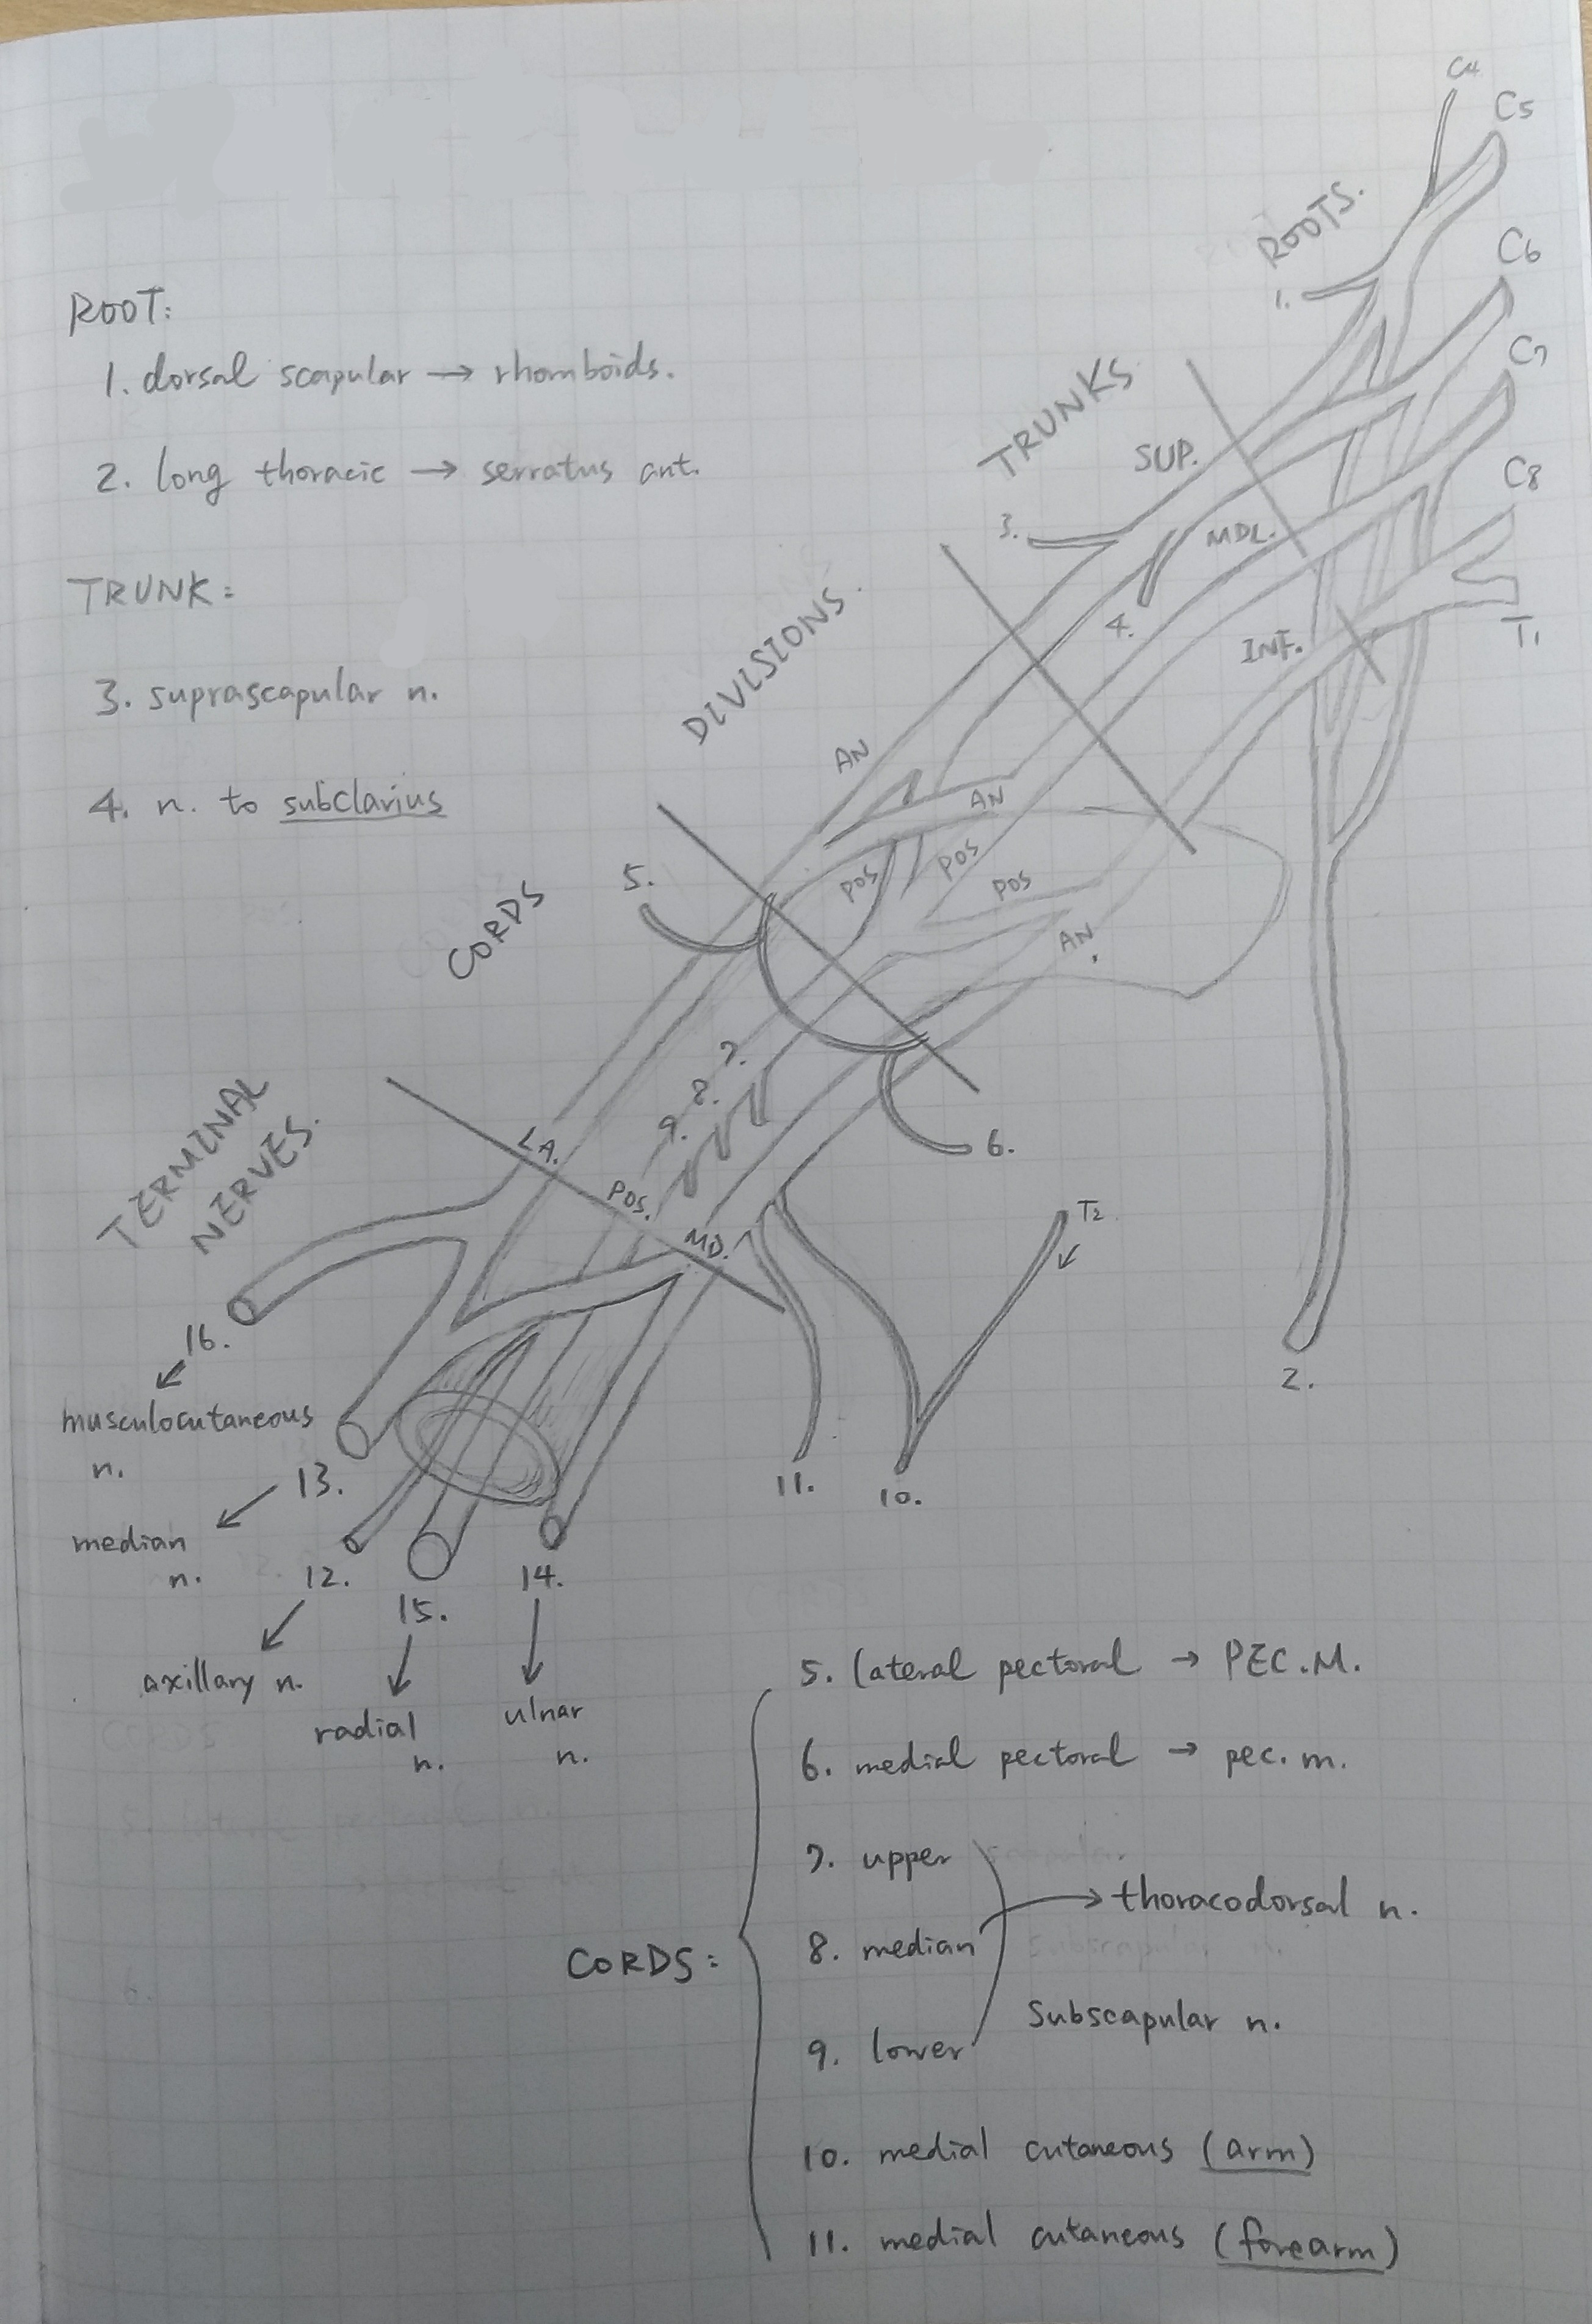 C4
C5
ROOTS.
C6
1.
C7
TRUNKS
SUP.
C8
3.
MDL.
4.
T1
INF.
DIVISIONS.
AN
AN
POS
POS
POS
AN.
5.
CORDS
7.
8.
9.
6.
LA.
POS.
MD.
T2
TERMINAL
NERVES.
2.
11.
10.
ROOT:
1. dorsal scapular → rhomboids.
2. long thoracic → serratus ant.
TRUNK:
3. suprascapular n.
4. n. to subclavius
16.
musculocutaneous
n.
13.
median
n.
12.
axillary n.
15.
radial
n.
14.
ulnar
n.
CORDS:
5. lateral pectoral → PEC.M.
6. medial pectoral → pec. m.
7. upper
8. median → thoracodorsal n.
9. lower
Subscapular n.
10. medial cutaneous (arm)
11. medial cutaneous (forearm)